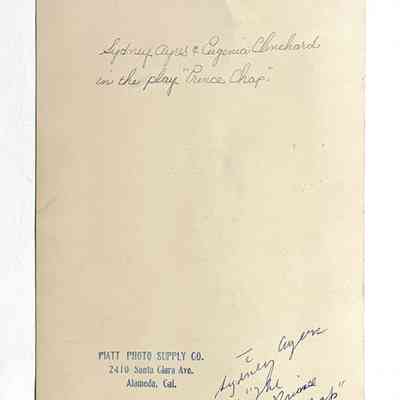 Sydney Ayres & Eugenia Clinchard
in the play "Prince Chap."
PIATT PHOTO SUPPLY CO.
2410 Santa Clara Ave.
Alameda, Cal.
Sydney Ayers
"The
Prince